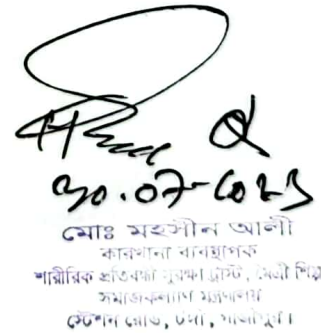 ৩০.০৭-২০২৩
মোঃ মহসীন আলী
কারখানা ব্যবস্থাপক
শারীরিক প্রতিবন্ধী সুরক্ষা ট্রাস্ট, মৈত্রী শিল্প
সমাজকল্যাণ মন্ত্রণালয়
স্টেশন রোড, টঙ্গী, গাজীপুর।